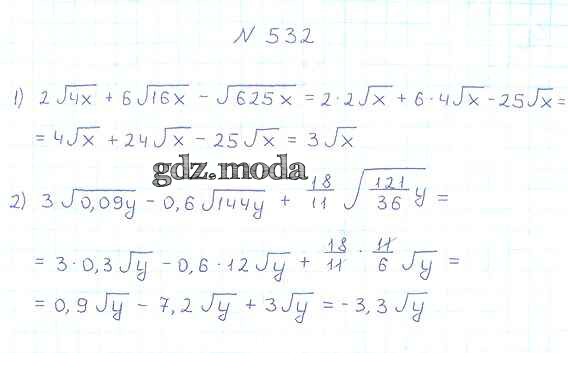 N 532
1) 2√4x + 6√16x − √625x = 2·2√x + 6·4√x − 25√x =
= 4√x + 24√x − 25√x = 3√x
gdz.moda
2) 3√0,09y − 0,6√144y + 18/11 √121/36 y =
= 3·0,3√y − 0,6·12√y + 18/11 · 11/6 √y =
= 0,9√y − 7,2√y + 3√y = −3,3√y